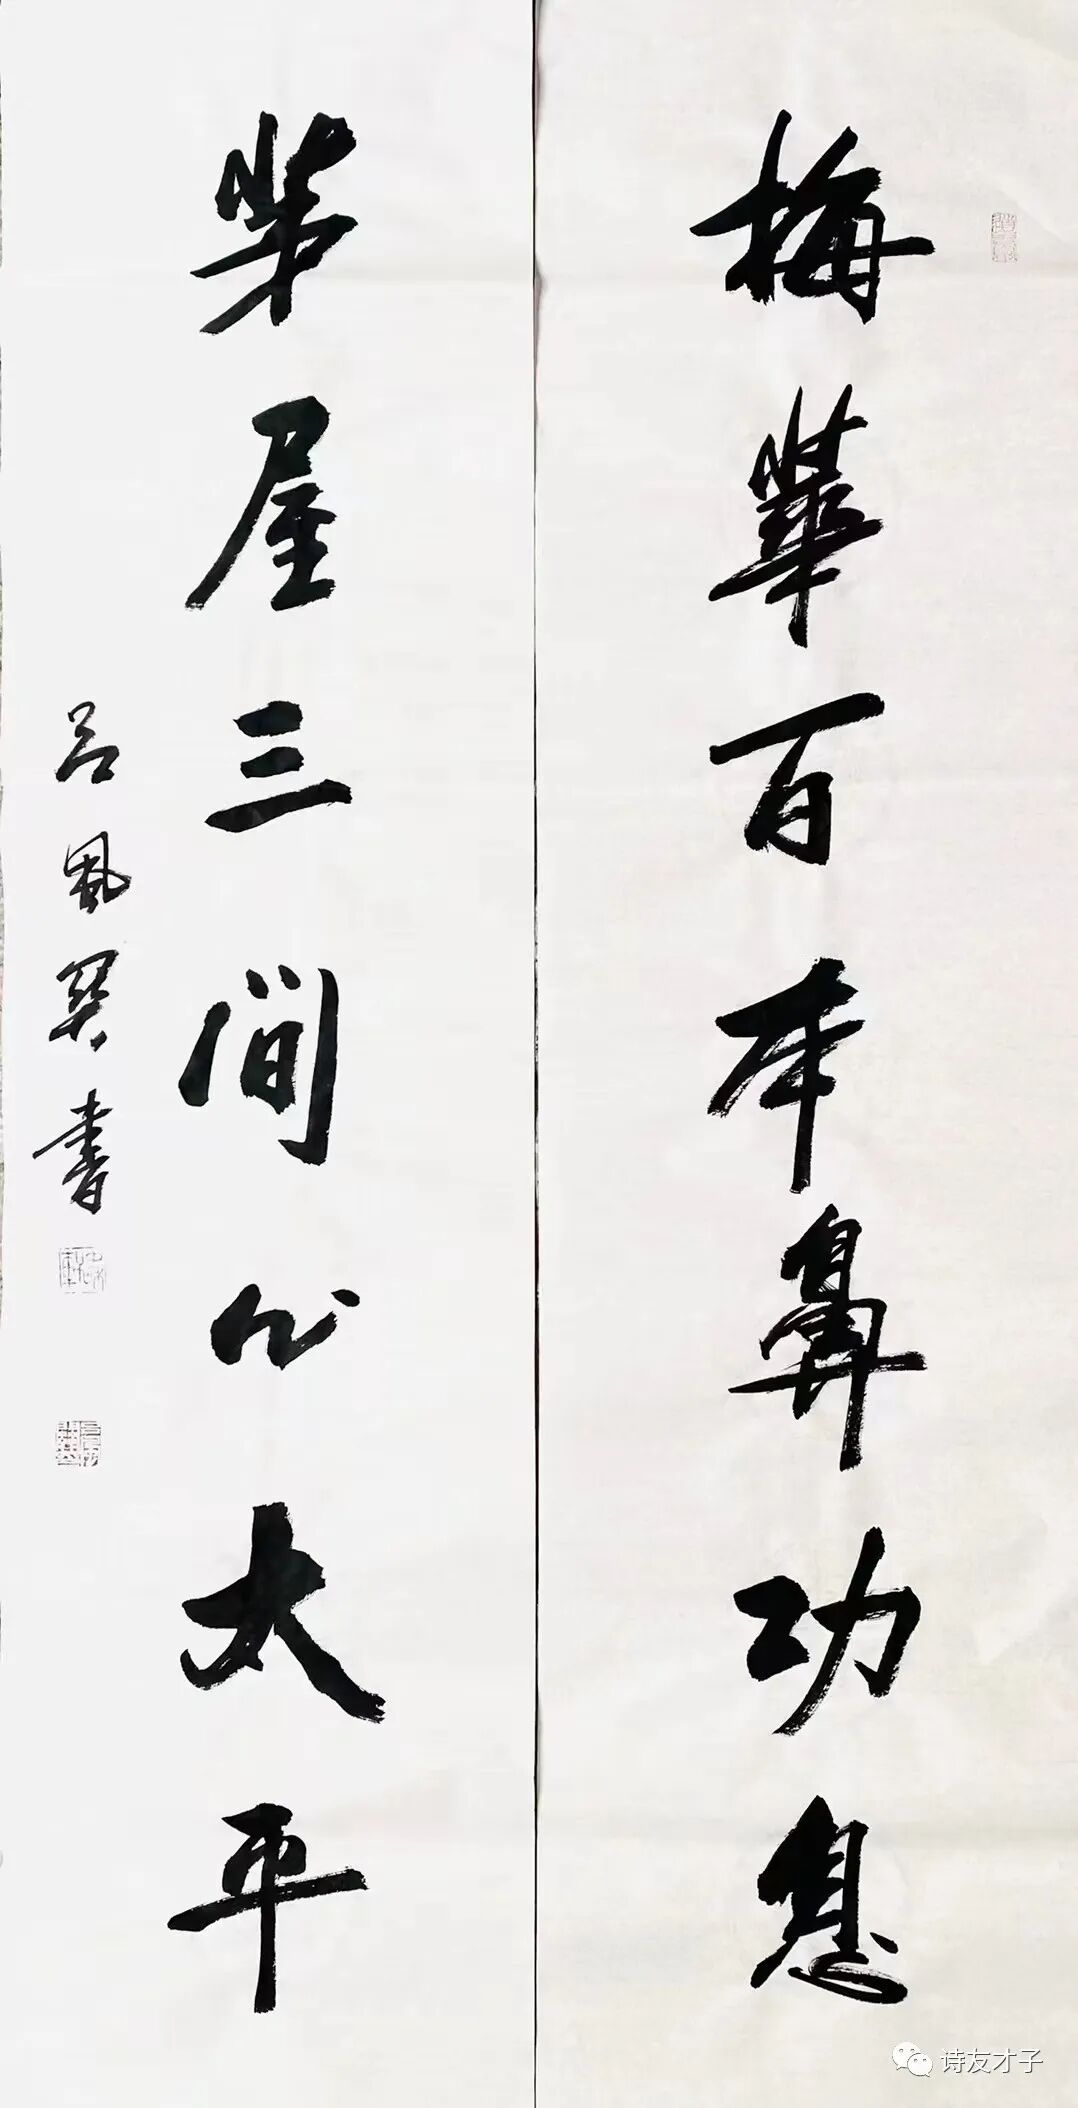 梅華百本鼻功息
茅屋三间心太平
吕凤
书
诗友才子